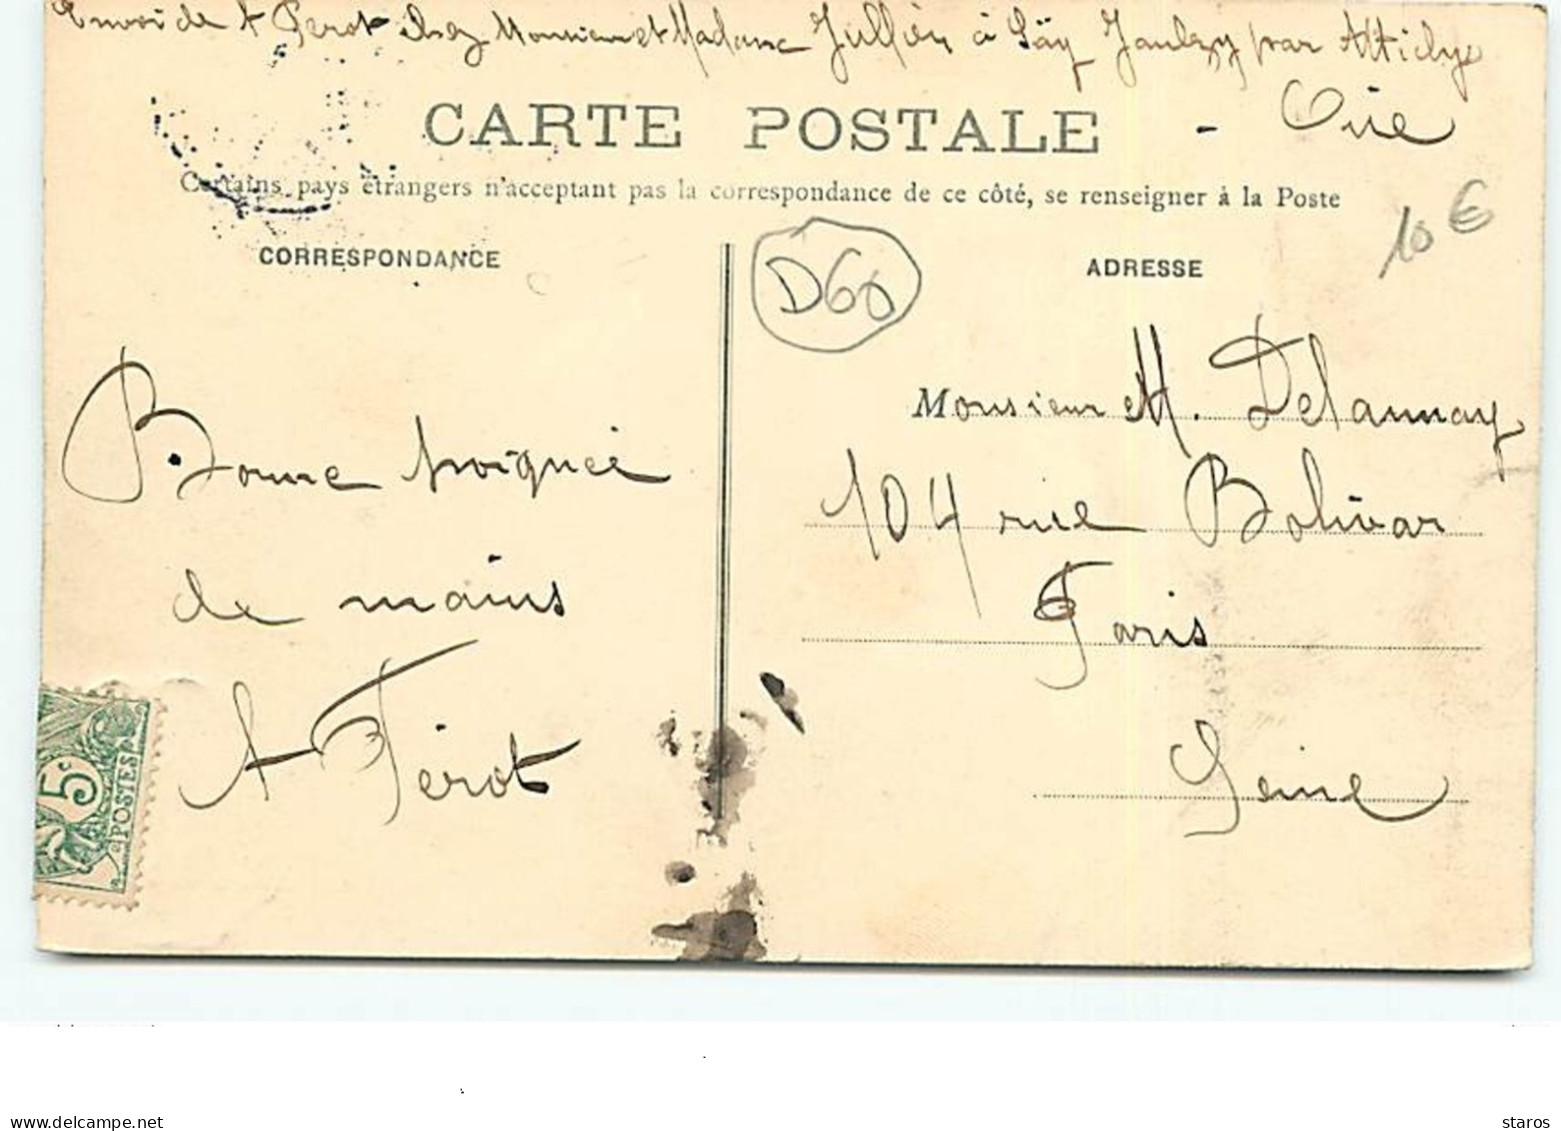 Envoi de A Perot chez Monsieur et Madame Jullien à Jaulzy par Attichy
Oise
CARTE POSTALE
Certains pays étrangers n'acceptant pas la correspondance de ce côté, se renseigner à la Poste
10 €
CORRESPONDANCE
D60
ADRESSE
Bonne poignée
de mains
A Pérot
Monsieur M. Delaunay
104 rue Bolivar
Paris
Seine
5c
POSTES
www.delcampe.net
staros